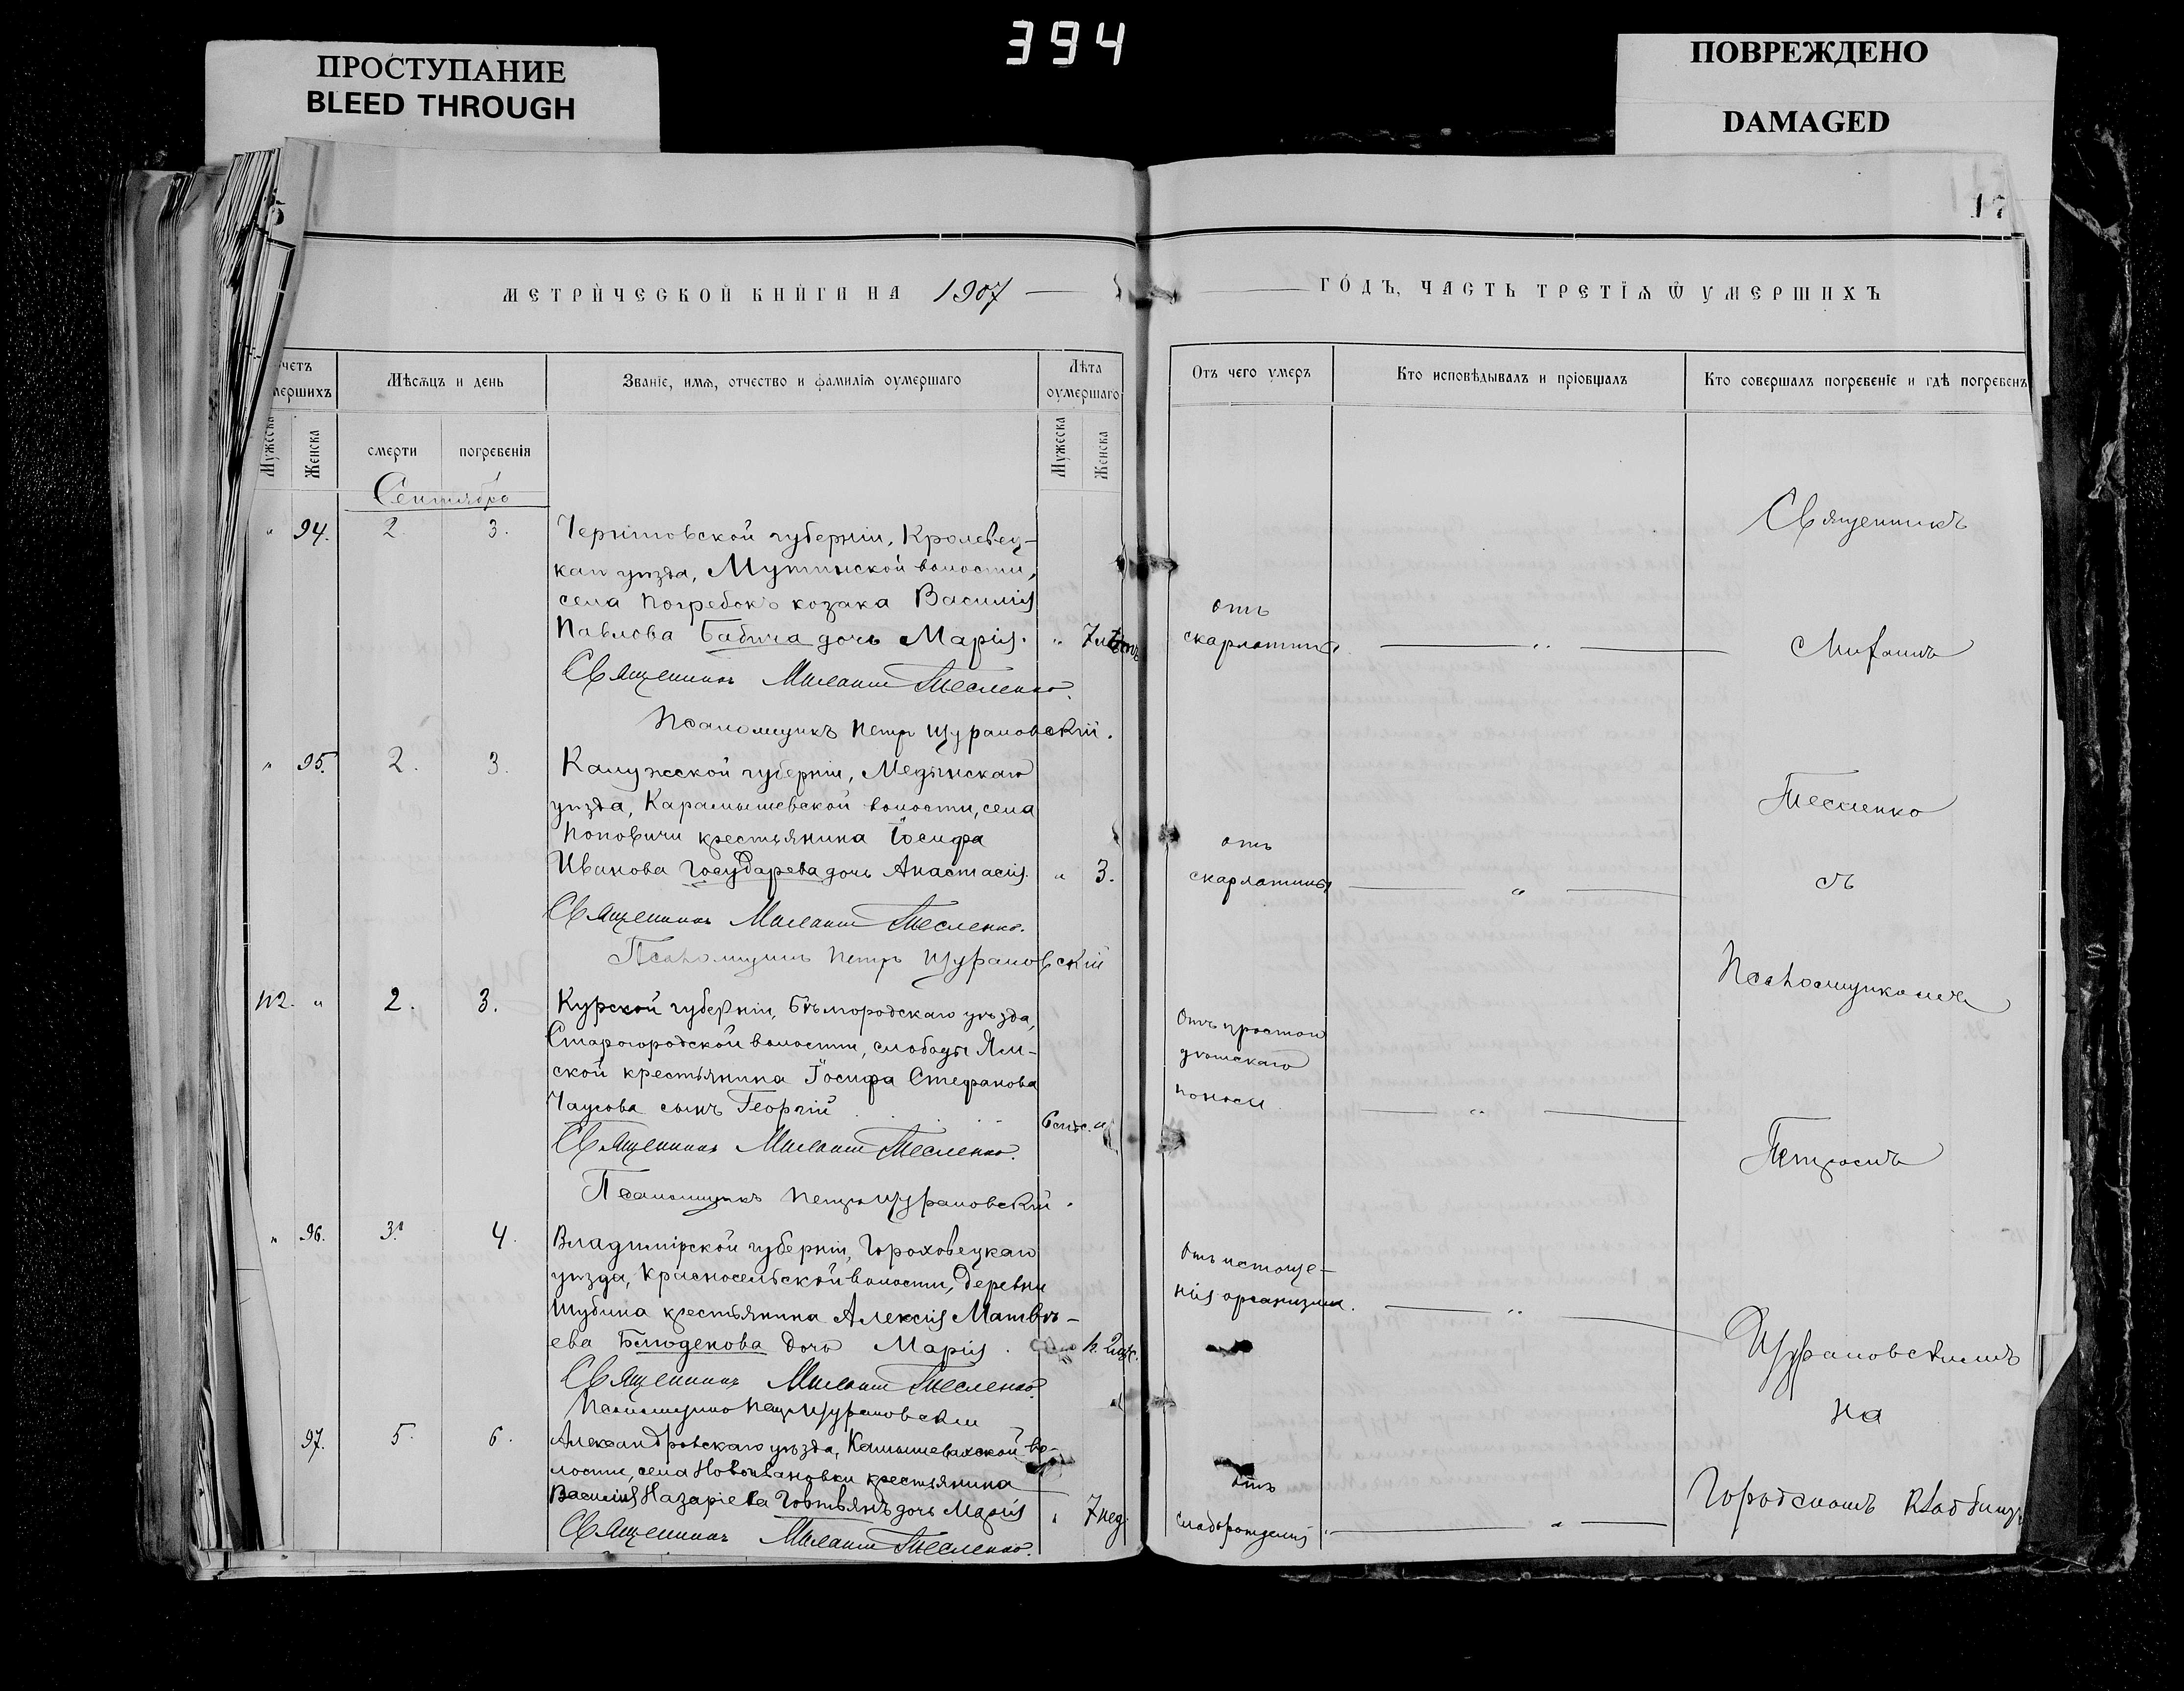 394
ПРОСТУПАНИЕ
BLEED THROUGH
ПОВРЕЖДЕНО
DAMAGED
17
МЕТРИЧЕСКОЙ КНИГИ НА 1907
ГОДЪ, ЧАСТЬ ТРЕТІѦ Ѿ УМЕРШИХЪ
четъ
мершихъ
Мѣсѧцъ и день
Званіе, имѧ, отчество и фамиліѧ оумершаго
Лѣта
оумершаго
Отъ чего умеръ
Кто исповѣдывалъ и пріобщалъ
Кто совершалъ погребеніе и гдѣ погребенъ
Мужеска
Женска
смерти
погребенія
Мужеска
Женска
Сентябрь
" 94. 2 3. Черниговской губерніи, Кролевец-
каго уѣзда, Мутинской волости,
села Погребокъ козака Василія
Павлова Бабича дочь Марія. " 7 лѣтъ
отъ
скарлатины "
Священникъ Тесленко.
Псаломщикъ Петръ Щурановскій.
" 95. 2. 3. Калужской губерніи, Медынскаго
уѣзда, Карамышевской волости, села
Поповичи крестьянина Іосифа
Иванова Государева дочь Анастасія. " 3.
отъ
скарлатины "
Священникъ Тесленко.
Псаломщикъ Петръ Щурановскій
112. " 2. 3. Курской губерніи, Бѣлгородскаго уѣзда,
Старогородской волости, слободы Ям-
ской крестьянина Іосифа Стефанова
Чаусова сынъ Георгій 6 мѣс. "
Отъ простого
дѣтскаго
поноса "
Священникъ Тесленко.
Псаломщикъ Петръ Щурановскій.
" 96. 3. 4. Владимірской губерніи, Гороховецкаго
уѣзда, Красносельской волости, деревни
Шубина крестьянина Алексія Матвѣ-
ева дочь Марія.
Отъ истоще-
нія организма. "
Священникъ Тесленко.
Псаломщикъ Петръ Щурановскій
97. 5. 6. Александровскаго уѣзда, Камышевахской во-
лости, села Новоивановки крестьянина
Василія Назаріева Говтвянъ дочь Марія " 7 нед.
Отъ
слаборожденія "
Священникъ Тесленко.
Священникъ
Тесленко
съ
Псаломщикомъ
Петромъ
Щурановскимъ
на
Городскомъ кладбищѣ